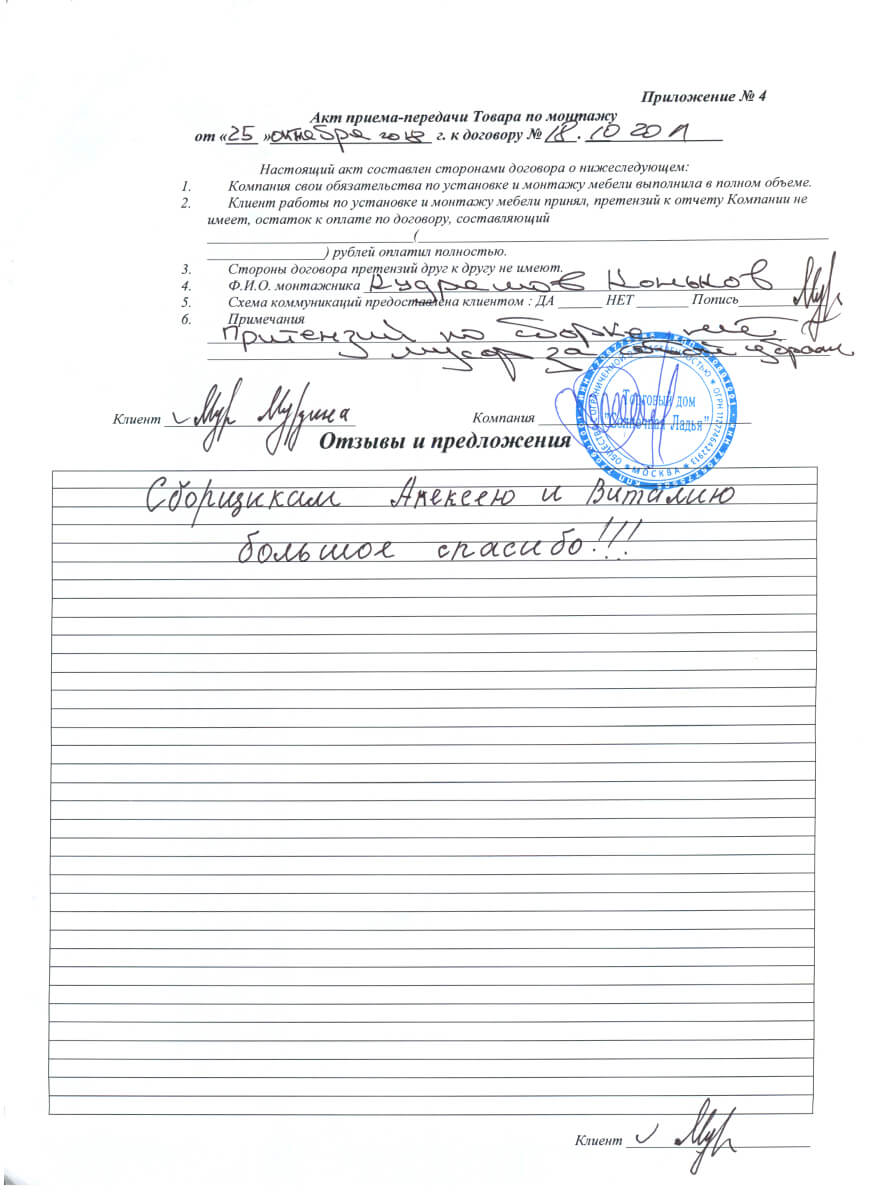 Приложение № 4
Акт приема-передачи Товара по монтажу
от «25» октября 2018 г. к договору № 18. 10 20
Настоящий акт составлен сторонами договора о нижеследующем:
1. Компания свои обязательства по установке и монтажу мебели выполнила в полном объеме.
2. Клиент работы по установке и монтажу мебели принял, претензий к отчету Компании не
имеет, остаток к оплате по договору, составляющий
(
) рублей оплатил полностью.
3. Стороны договора претензий друг к другу не имеют.
4. Ф.И.О. монтажника Кудряшов Коньков
5. Схема коммуникаций предоставлена клиентом : ДА НЕТ Попись
6. Примечания
Притензий по сборке нет
мусор за собой убрали
Клиент Компания
Торговый дом
"Солнечная Ладья"
МОСКВА
Отзывы и предложения
Сборщикам Алексею и Виталию
большое спасибо!!!
Клиент